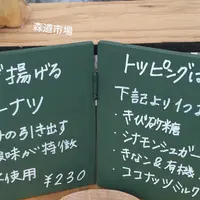 森道市場
揚げる
ーナツ
の引き出す
味が特徴
使用 ¥230
トッピングは
下記より1つ
・きび砂糖
・シナモンシュガー
・きなこ&有機
・ココナッツミルク